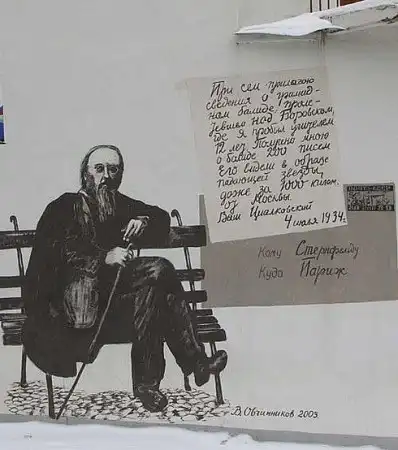 При сем прилагаю
сведения о громад-
ном балиде, проле-
тевшем над Боровском,
где я пробыл учителем
12 лет. Получено мною
о балиде 200 писем
Его видели в образе
падающей звезды,
даже за 1000 килом.
от Москвы.
Ваш Циолковский
4 июля 1934.
Кому Стернфельду
Куда Париж
В. Овчинников 2003